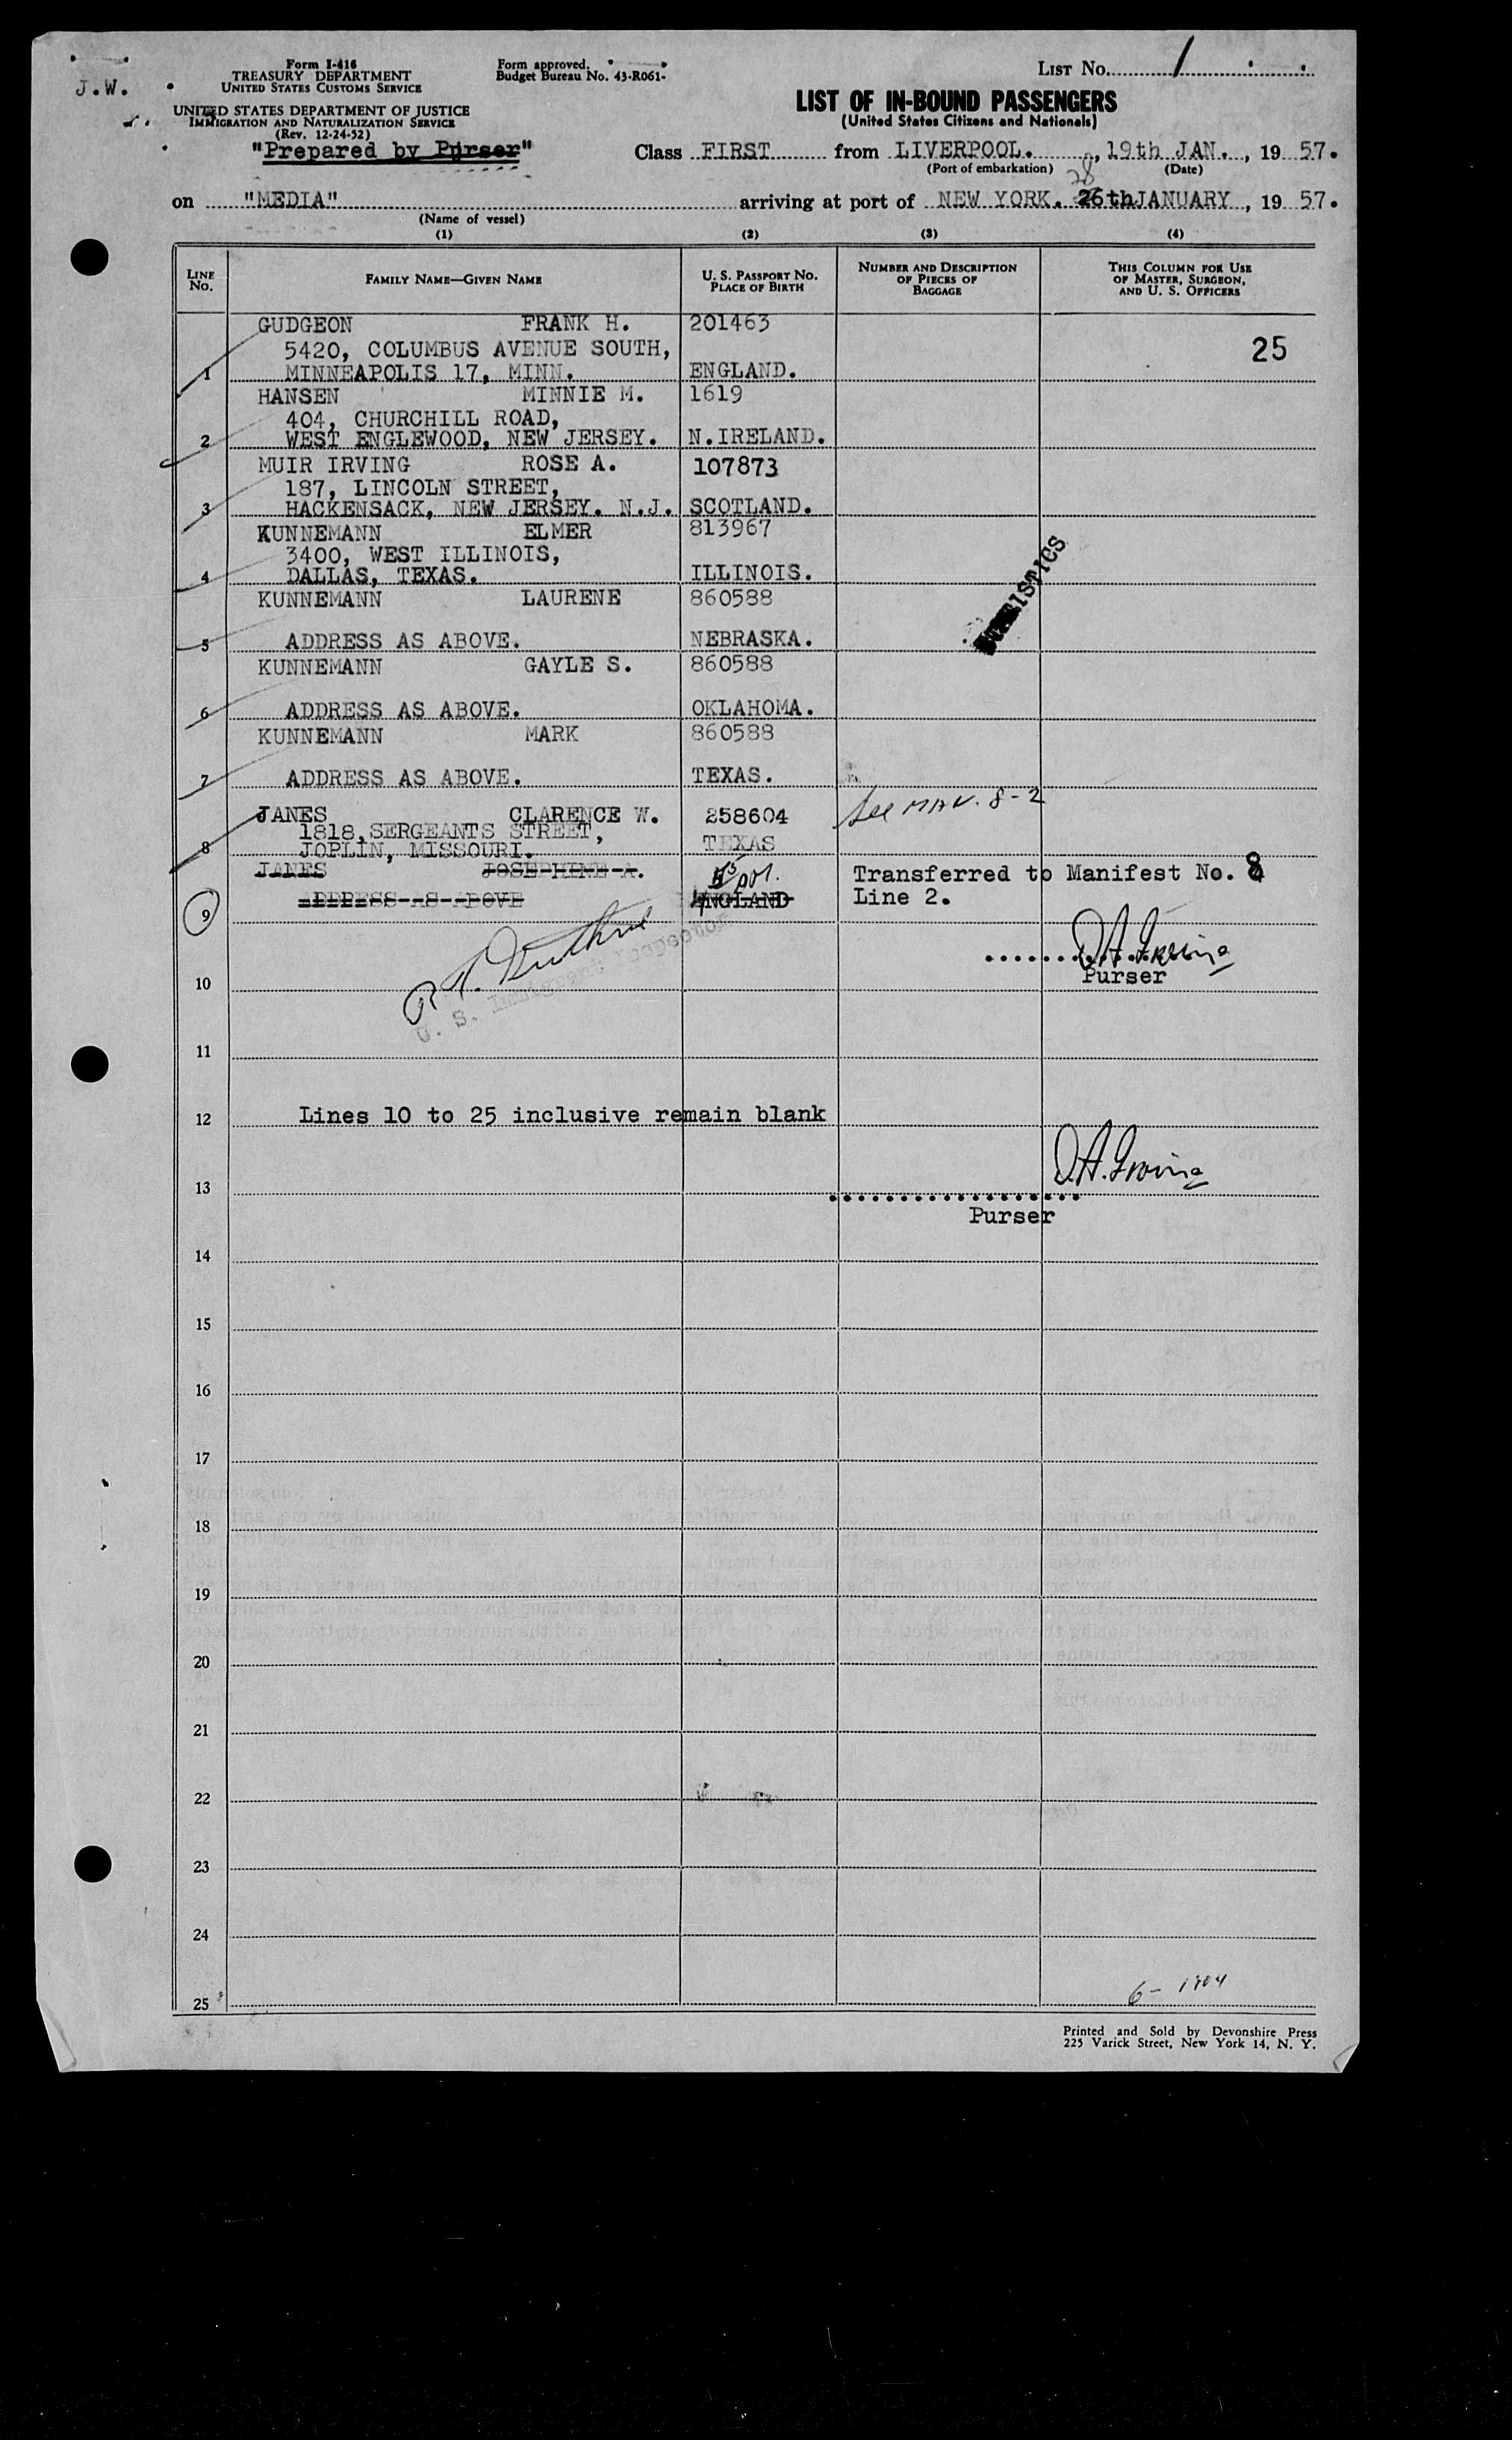 J.W.
Form I-416
TREASURY DEPARTMENT
UNITED STATES CUSTOMS SERVICE
UNITED STATES DEPARTMENT OF JUSTICE
IMMIGRATION AND NATURALIZATION SERVICE
(Rev. 12-24-52)
"Prepared by Purser"
Form approved.
Budget Bureau No. 43-R061-
LIST No. 1
LIST OF IN-BOUND PASSENGERS
(United States Citizens and Nationals)
Class FIRST from LIVERPOOL., 19th JAN., 19 57.
(Port of embarkation) (Date)
28
on "MEDIA" arriving at port of NEW YORK. 26th JANUARY, 19 57.
(Name of vessel)
(1) (2) (3) (4)
LINE No. FAMILY NAME—GIVEN NAME U. S. PASSPORT NO. PLACE OF BIRTH NUMBER AND DESCRIPTION OF PIECES OF BAGGAGE THIS COLUMN FOR USE OF MASTER, SURGEON, AND U. S. OFFICERS
GUDGEON FRANK H. 201463
5420, COLUMBUS AVENUE SOUTH, 25
1 MINNEAPOLIS 17, MINN. ENGLAND.
HANSEN MINNIE M. 1619
404, CHURCHILL ROAD,
2 WEST ENGLEWOOD, NEW JERSEY. N.IRELAND.
MUIR IRVING ROSE A. 107873
187, LINCOLN STREET,
3 HACKENSACK, NEW JERSEY. N.J. SCOTLAND.
KUNNEMANN ELMER 813967
3400, WEST ILLINOIS,
4 DALLAS, TEXAS. ILLINOIS.
KUNNEMANN LAURENE 860588
5 ADDRESS AS ABOVE. NEBRASKA.
KUNNEMANN GAYLE S. 860588
6 ADDRESS AS ABOVE. OKLAHOMA.
KUNNEMANN MARK 860588
7 ADDRESS AS ABOVE. TEXAS.
JANES CLARENCE W. 258604 See MAN. 8-2
1818, SERGEANTS STREET,
8 JOPLIN, MISSOURI. TEXAS
JANES JOSEPHINE A. Transferred to Manifest No. 8
9 ADDRESS AS ABOVE ENGLAND Line 2.
U. S. Immigrant Inspector
D.A. Irvine
Purser
10
11
12 Lines 10 to 25 inclusive remain blank
D.A. Irvine
13
Purser
14
15
16
17
18
19
20
21
22
23
24
25
Printed and Sold by Devonshire Press
225 Varick Street, New York 14, N. Y.